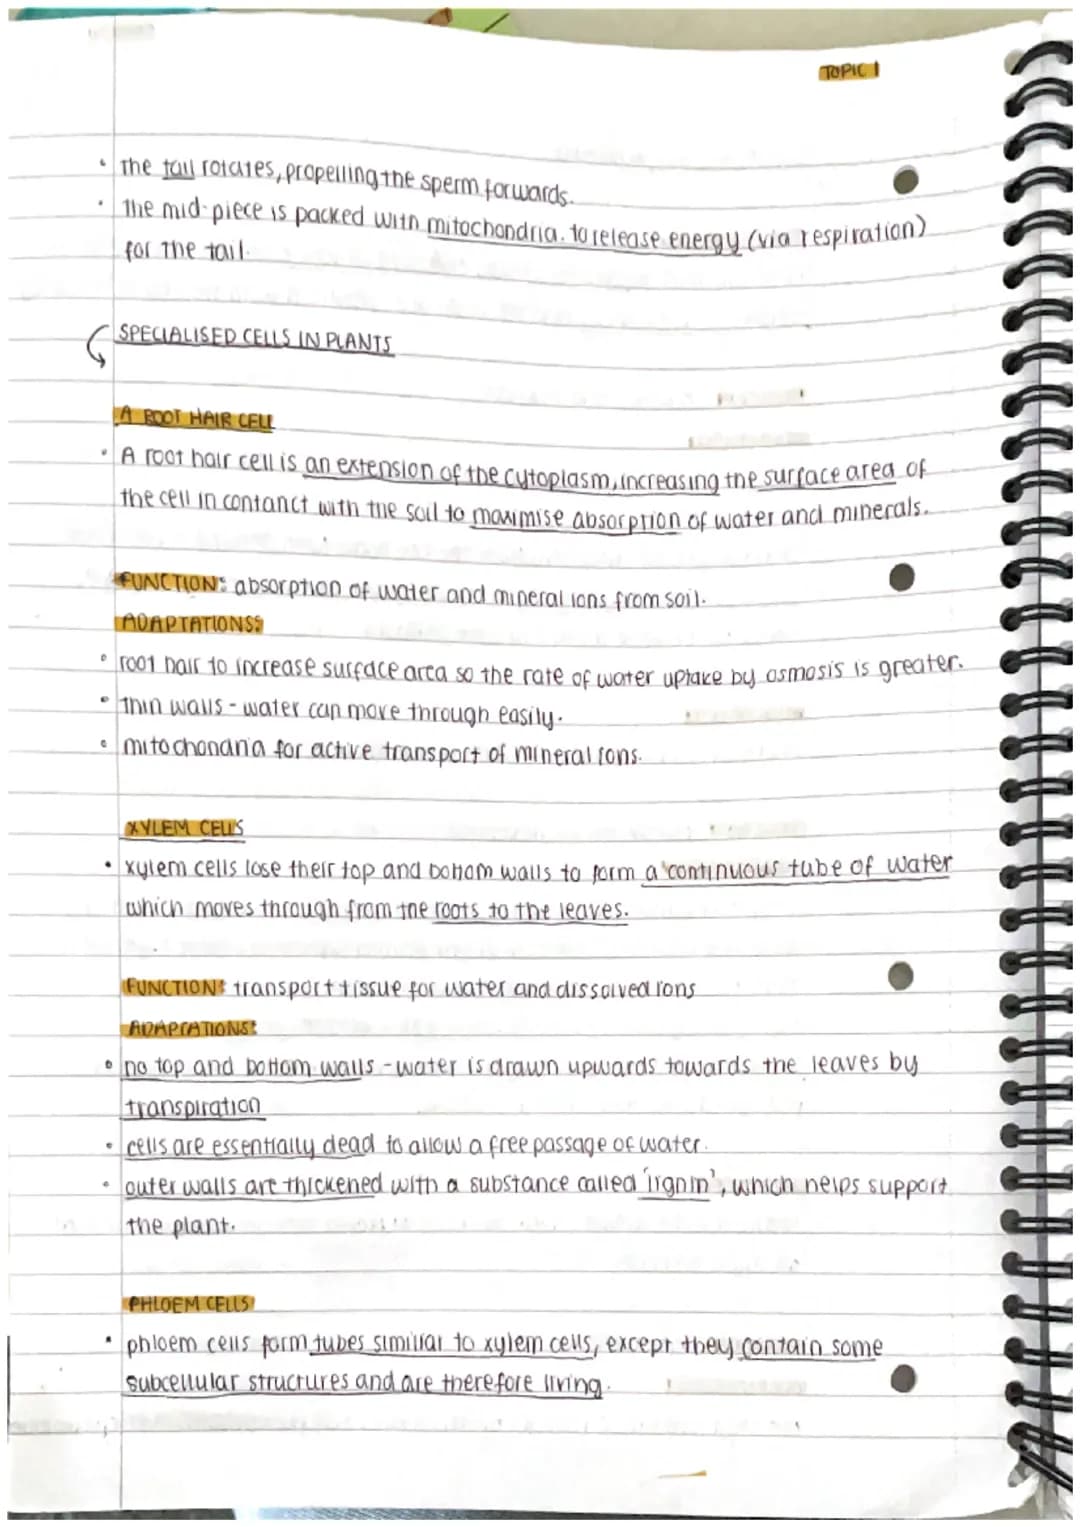 TOPIC 1
• The tail rotates, propelling the sperm forwards.
• The mid-piece is packed with mitochondria. to release energy (via respiration)
for the tail.
SPECIALISED CELLS IN PLANTS
A ROOT HAIR CELL
• A root hair cell is an extension of the cytoplasm, increasing the surface area of
the cell in contanct with the soil to maximise absorption of water and minerals.
FUNCTION: absorption of water and mineral ions from soil.
ADAPTATIONS:
• root hair to increase surface area so the rate of water uptake by osmosis is greater.
• thin walls - water can move through easily.
• mitochondria for active transport of mineral ions.
XYLEM CELLS
• xylem cells lose their top and bottom walls to form a continuous tube of water
which moves through from the roots to the leaves.
FUNCTION: transport tissue for water and dissolved ions
ADAPTATIONS:
• no top and bottom walls - water is drawn upwards towards the leaves by
transpiration
• cells are essentially dead to allow a free passage of water.
• outer walls are thickened with a substance called 'lignin', which helps support
the plant.
PHLOEM CELLS
• phloem cells form tubes similiar to xylem cells, except they contain some
subcellular structures and are therefore living.